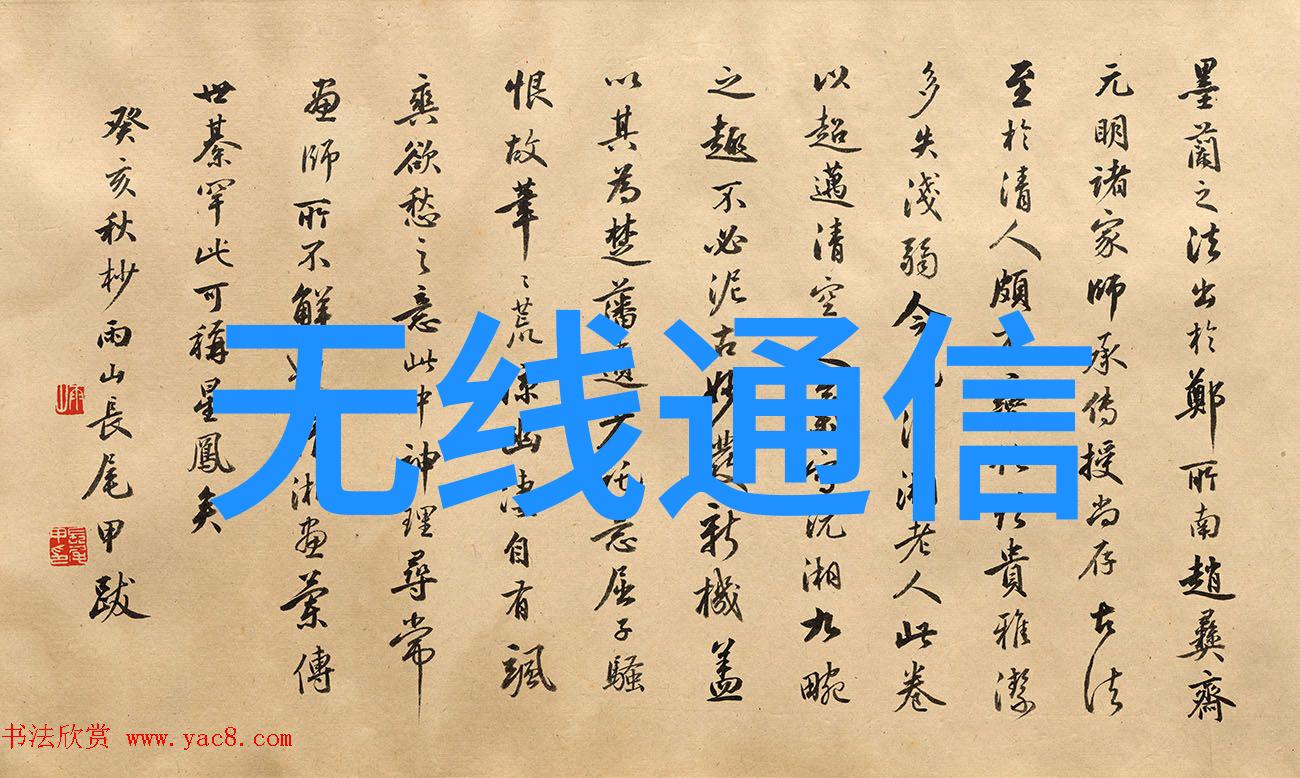 墨蘭之法出於鄭所南趙彝齋
元明諸家師承傳授尚存古法
至於清人頗貴雅潔
多失淺弱今老人此卷
以超邁清空沅湘九畹
之趣不必泥古妙發新機蓋
以其為楚藩遺意屈子騷
恨故筆〻荒自有颯
爽欲愁之意此中神理尋常
畫師所不解湘畫蘭傳
世綦罕此可稱星鳳矣
癸亥秋杪雨山長尾甲跋
无线通信
书法欣赏 www.yac8.com